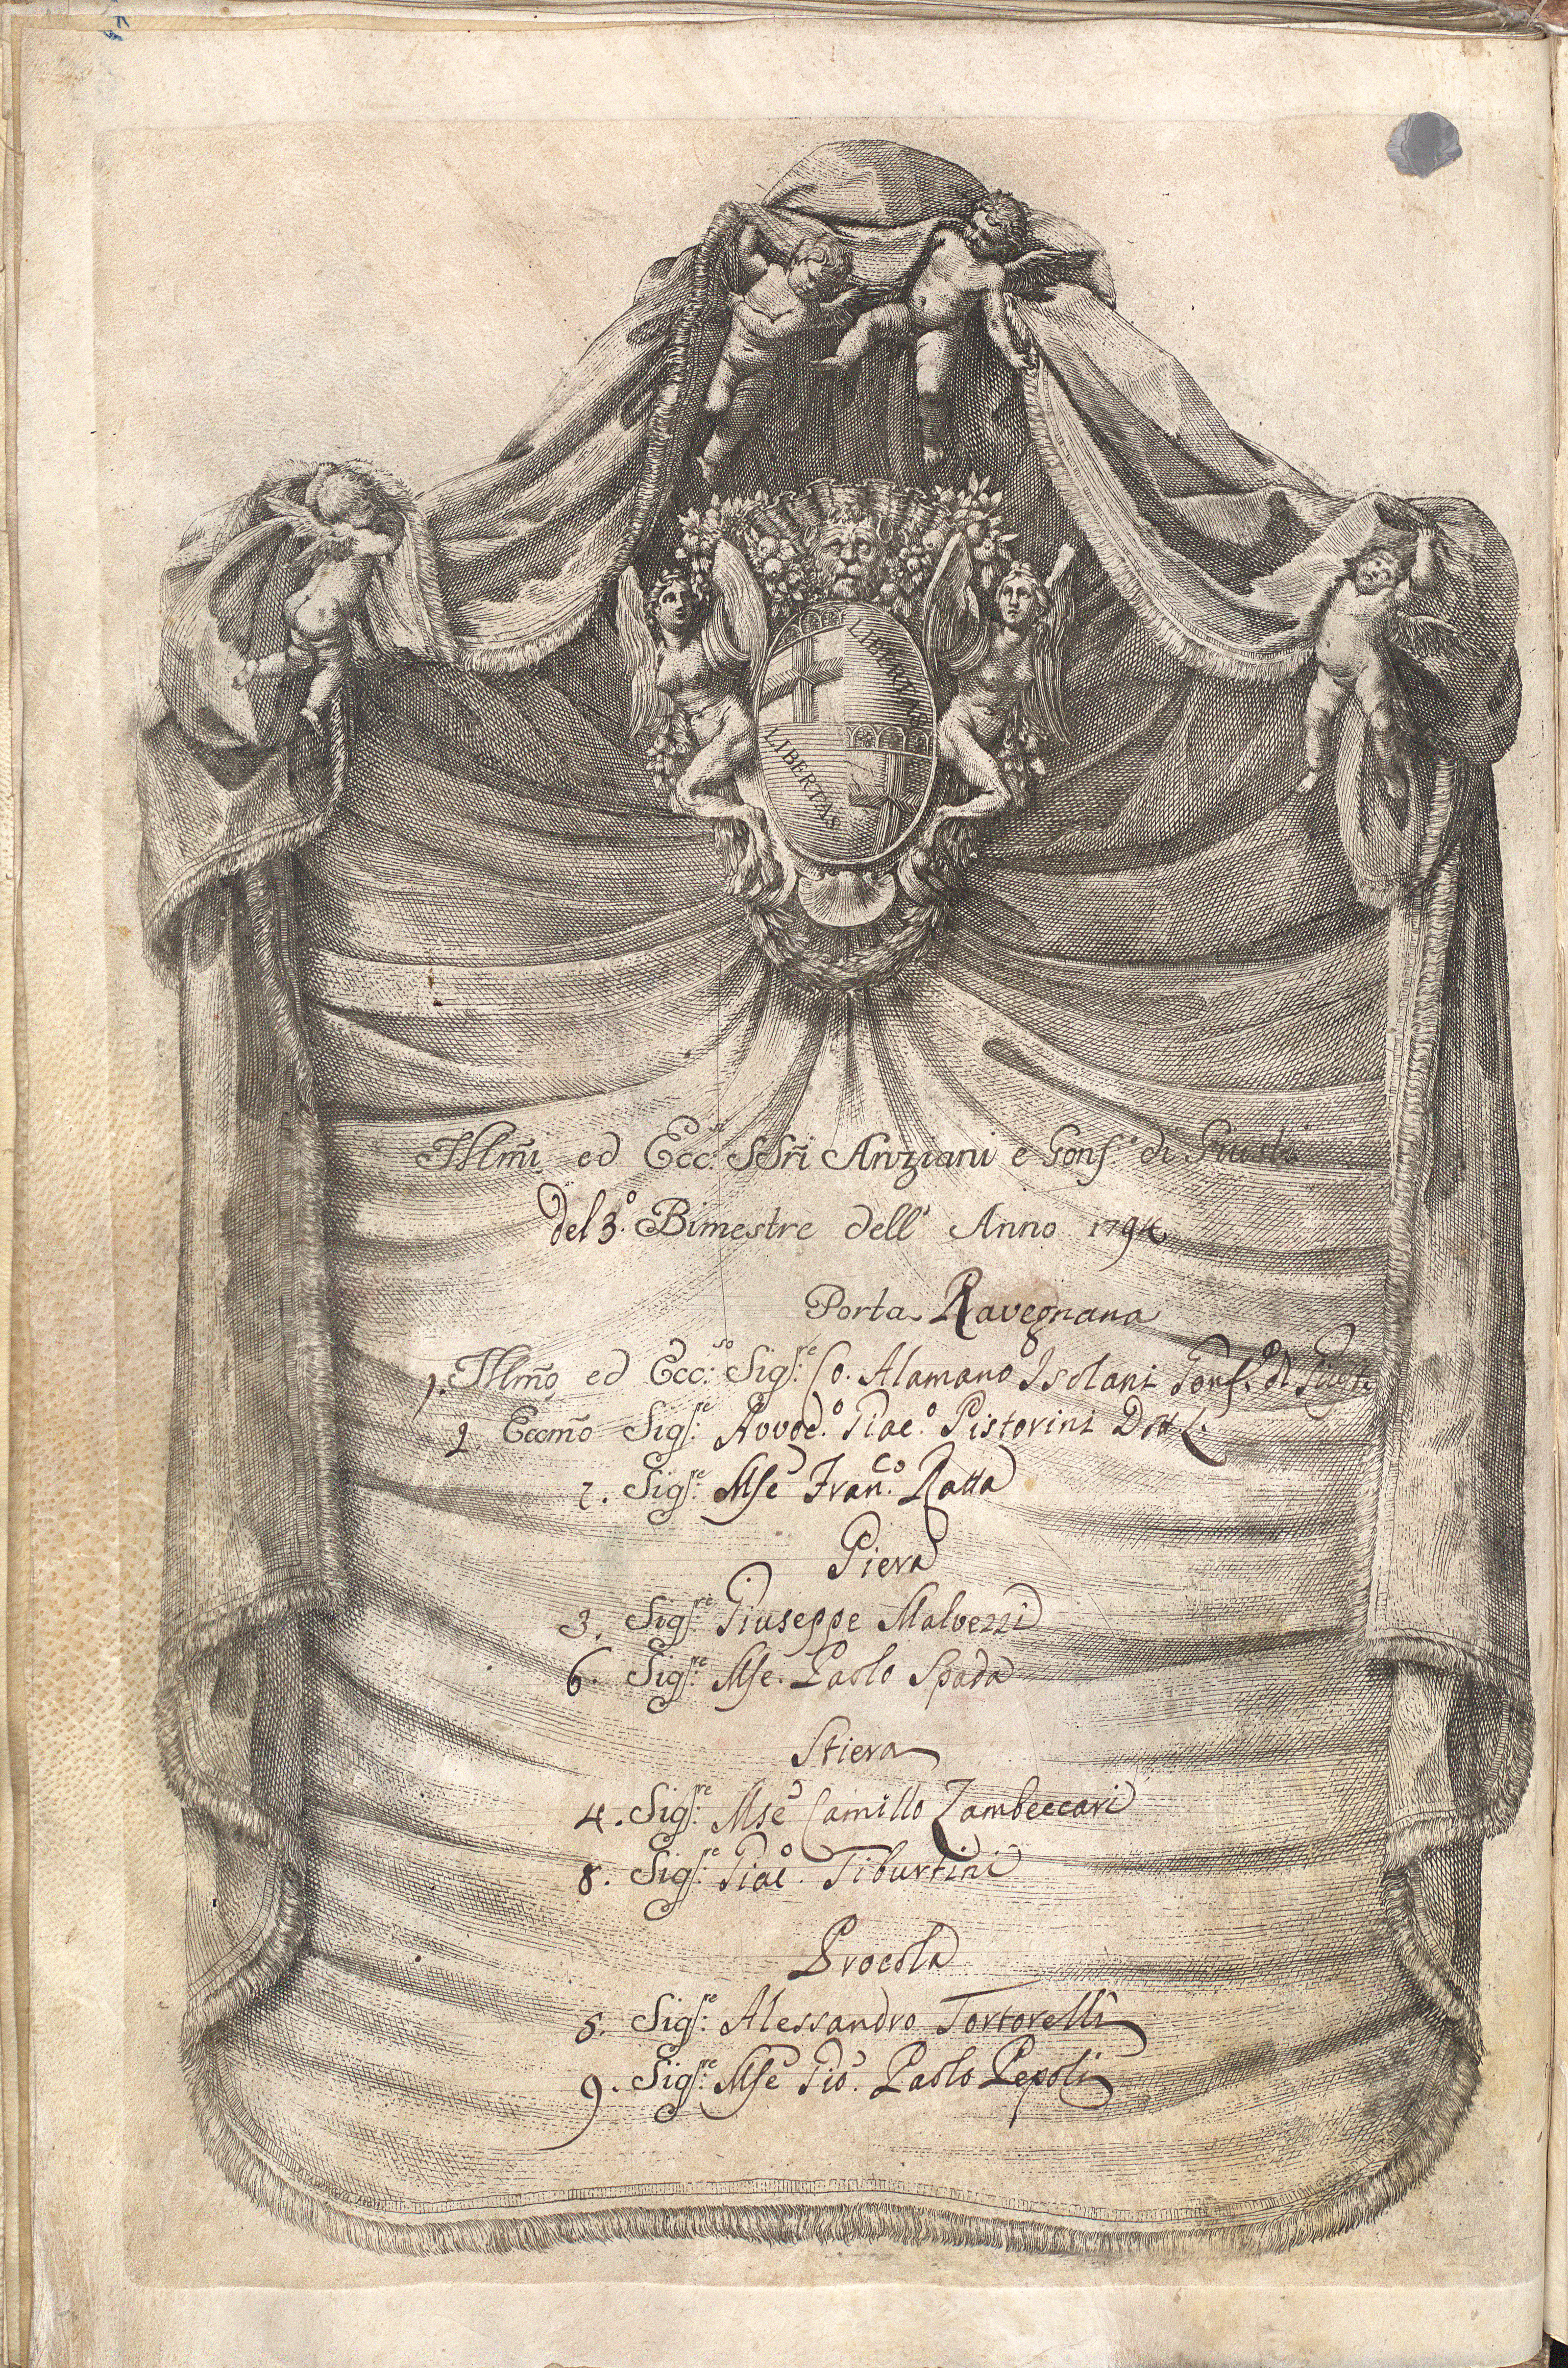 LIBERTAS
LIBERTAS
Illm̃i ed Ecc.si SSri Anziani e Gonf.e di Giustā
Del 3.º Bimestre dell' Anno 1794
Porta Ravegnana
1. Illm̃o ed Ecc.so Sig.re Co. Alamano Isolani Gonf.e di Giustā
2 Eccm̃o Sig.re Avvoc.o Giac.o Pistorini Dott L.
7. Sig.re Mse Fran.co Ratta
Piera
3. Sig.re Giuseppe Malvezzi
6. Sig.re Mse. Paolo Spada
Stiera
4. Sig.re Mse Camillo Zambeccari
8. Sig.re Giac.o Tiburtini
Procola
5. Sig.re Alessandro Tortorelli
9. Sig.re Mse Gio. Paolo Pepoli